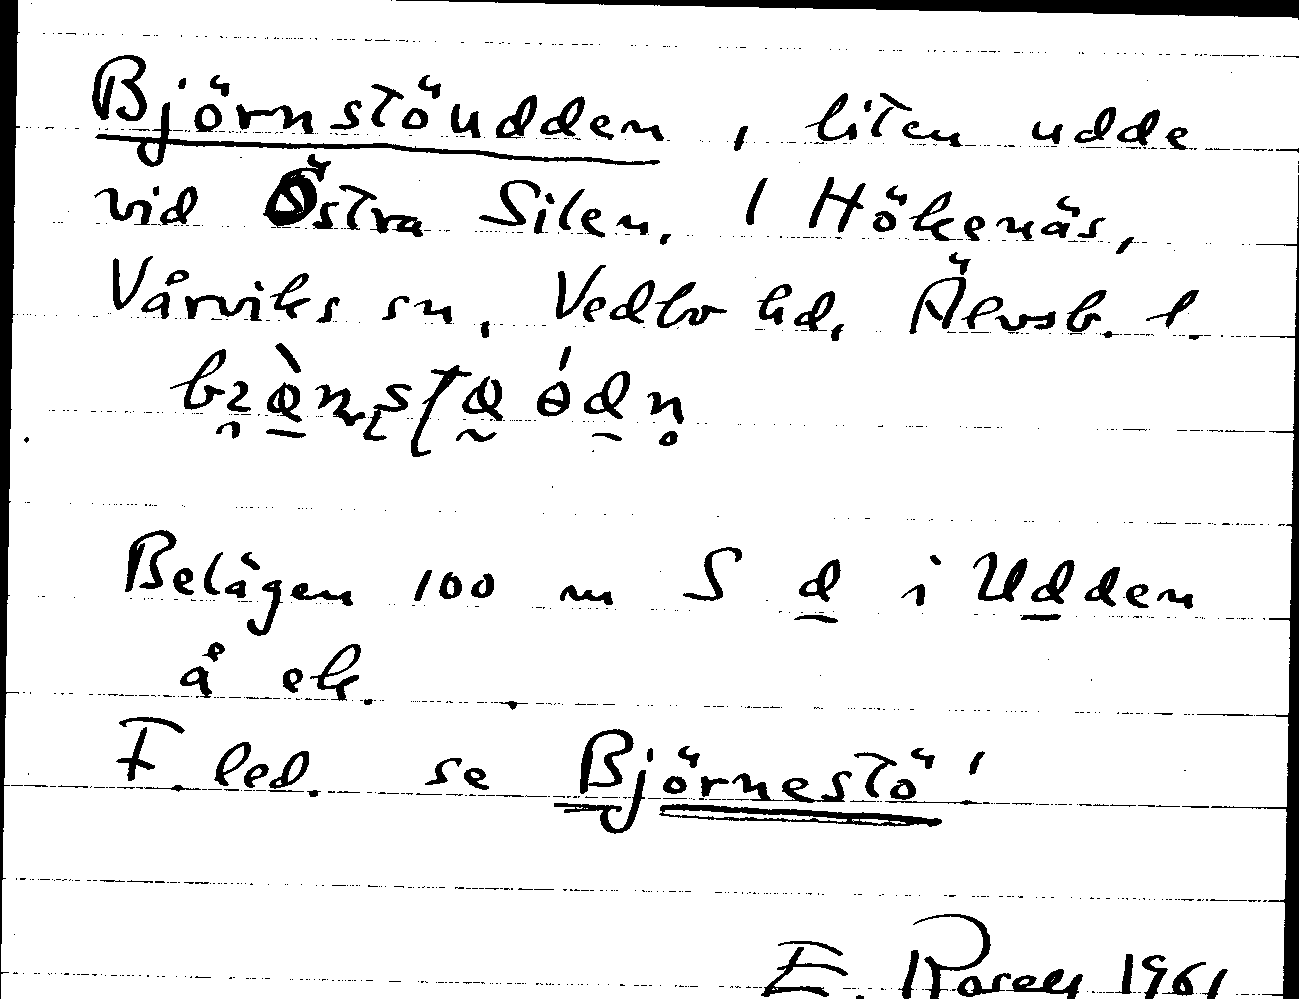 Björnstöudden, liten udde
vid Östra Silen, 1 Hökenäs,
Vårviks sn, Vedbo hd, Älvsb. l.
Belägen 100 m S d i Udden
å ek.
F. led. se Björnestö!
E. Rosell 1961